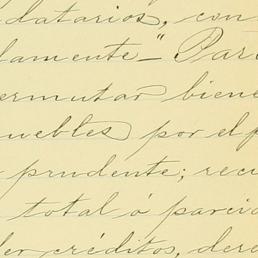 datarios, con
lamente_" Par
ermutar biene
uebles por el p
prudente; reci
total ó parcia
er créditos, dere